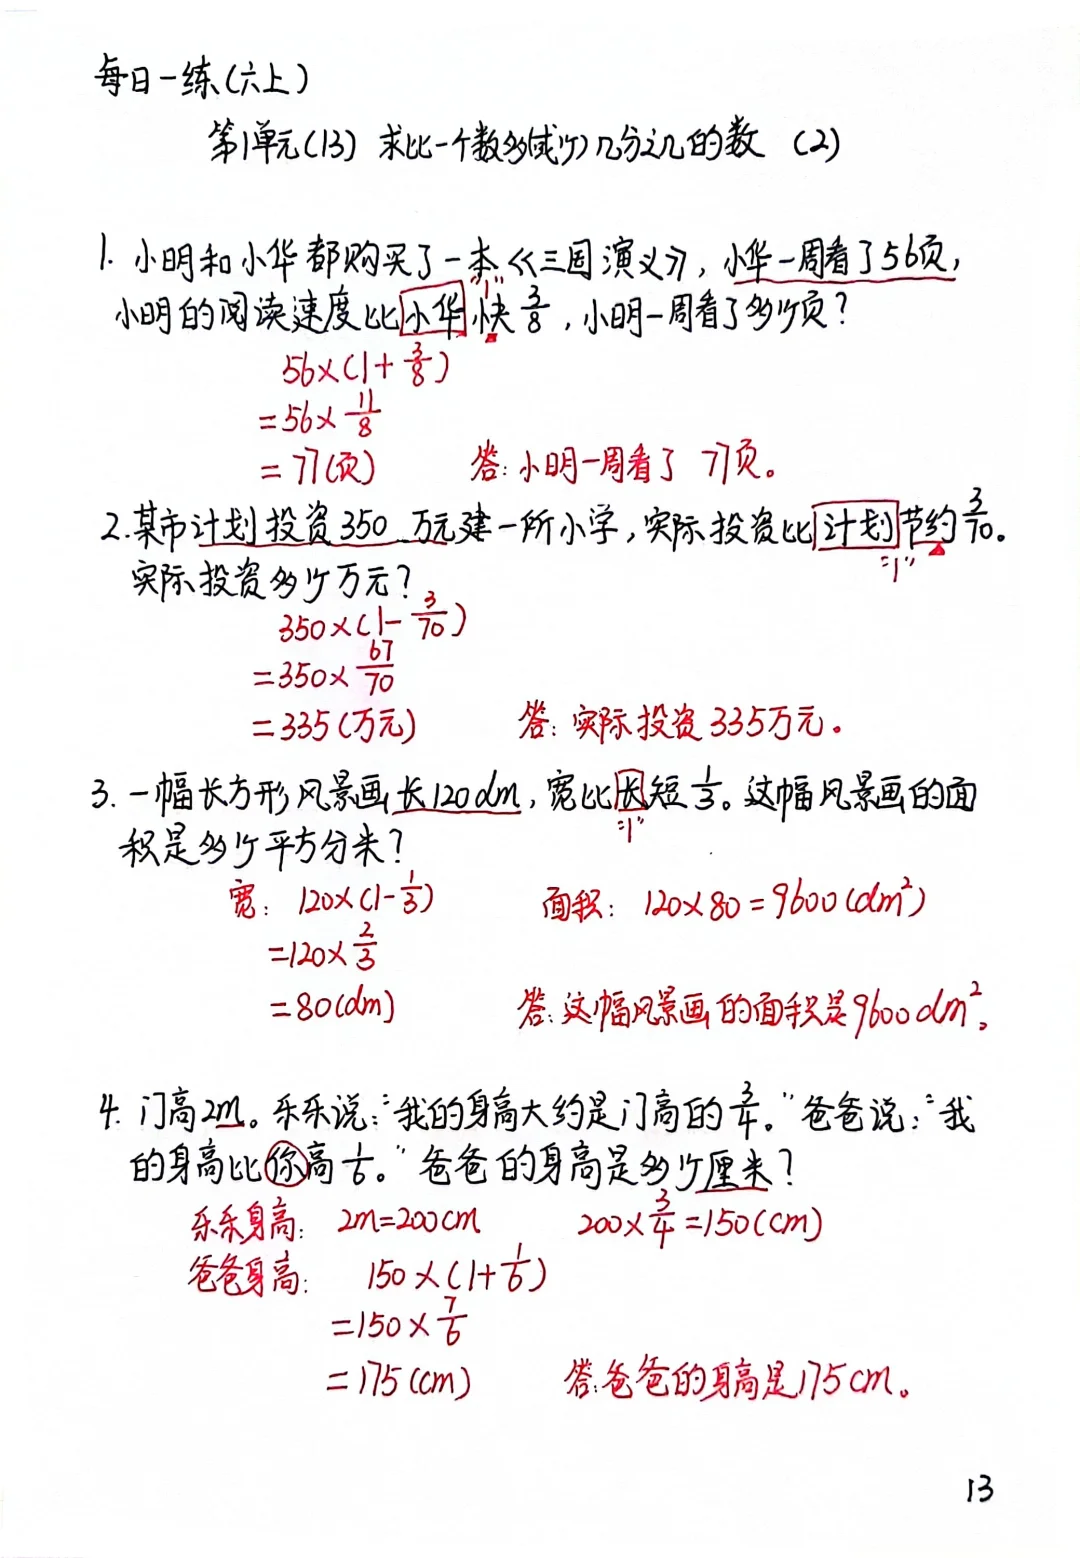 每日一练(六上)
第1单元(13) 求比一个数多(或少)几分之几的数 (2)
1. 小明和小华都购买了一本《三国演义》,小华一周看了56页,
"1"
小明的阅读速度比小华快3/8,小明一周看了多少页?
56×(1+3/8)
=56×11/8
=77(页) 答:小明一周看了77页。
2.某市计划投资350万元建一所小学,实际投资比计划节约3/70。
"1"
实际投资多少万元?
350×(1-3/70)
=350×67/70
=335(万元) 答:实际投资335万元。
3. 一幅长方形风景画长120dm,宽比长短1/3。这幅风景画的面
"1"
积是多少平方分米?
宽: 120×(1-1/3) 面积: 120×80=9600(dm²)
=120×2/3
=80(dm) 答:这幅风景画的面积是9600dm²。
4. 门高2m。乐乐说:"我的身高大约是门高的3/4。"爸爸说:"我
的身高比你高1/6。"爸爸的身高是多少厘米?
乐乐身高: 2m=200cm 200×3/4=150(cm)
爸爸身高: 150×(1+1/6)
=150×7/6
=175(cm) 答:爸爸的身高是175cm。
13